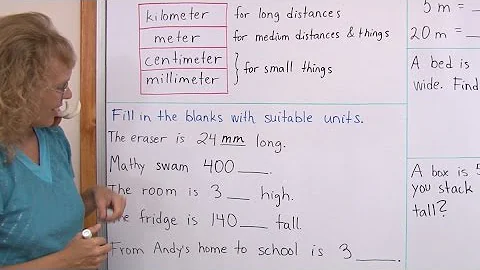 kilometer for long distances
meter for medium distances & things
centimeter
millimeter
for small things
Fill in the blanks with suitable units.
The eraser is 24 mm long.
Mathy swam 400 ___.
The room is 3 ___ high.
fridge is 140 ___ tall.
From Andy's home to school is 3 ___.
5 m =
20 m =
A bed is
wide. Find
A box is 5
you stack
tall?